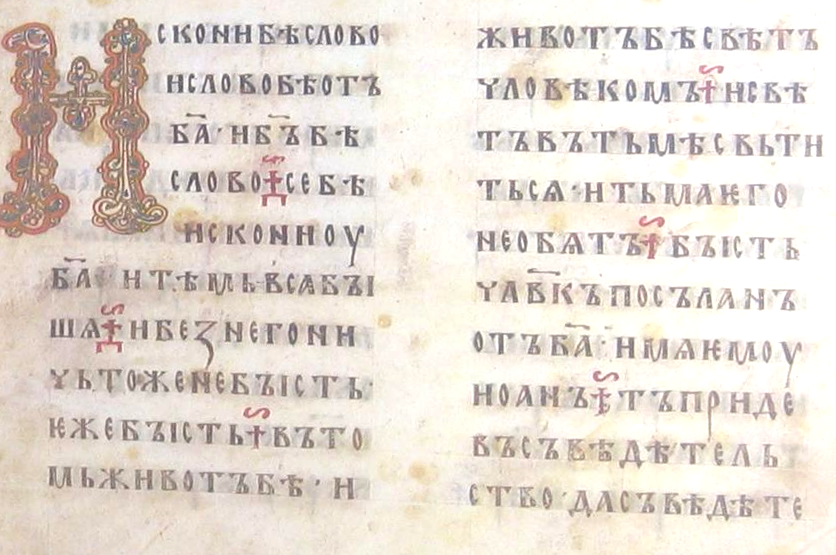 Искони бѣ слово
и слово бѣ отъ
б҃а · и б҃ъ бѣ
слово се бѣ
искони оу
б҃а и тѣмь всѧ бꙑ
шѧ и без него ни
чьтоже не бꙑсть ·
ѥже бꙑсть въ то
мь животъ бѣ · и
животъ бѣ свѣтъ
чловѣкомъ и свѣ
тъ въ тьмѣ свьти
тьсѧ · и тьма ѥго
не обѧтъ бꙑсть
чл҃вкъ посъланъ
отъ б҃а · имѧ ѥмоу
иоанъ тъ приде
въ съвѣдѣтель
ство · да съвѣдѣте